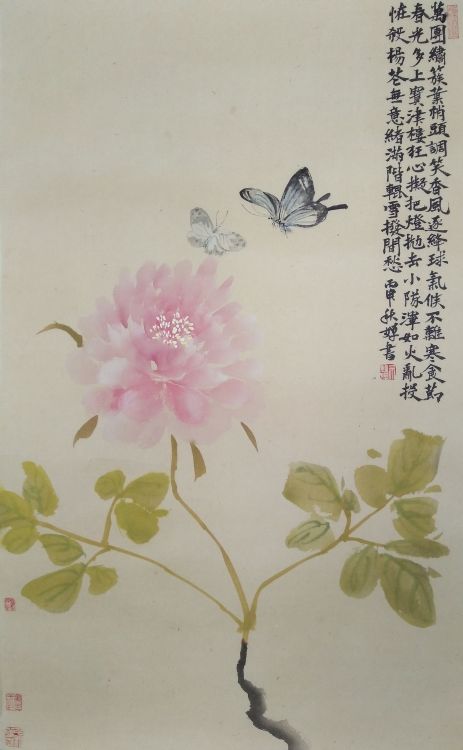 萬團繡簇葉梢頭調笑香風逐絳球氣候不離寒食節
春光多上寶津樓狂心擬把燈拋去小隊渾如火亂投
恠殺楊花無意緒滿階輥雪撥閒愁 丙申秋 書